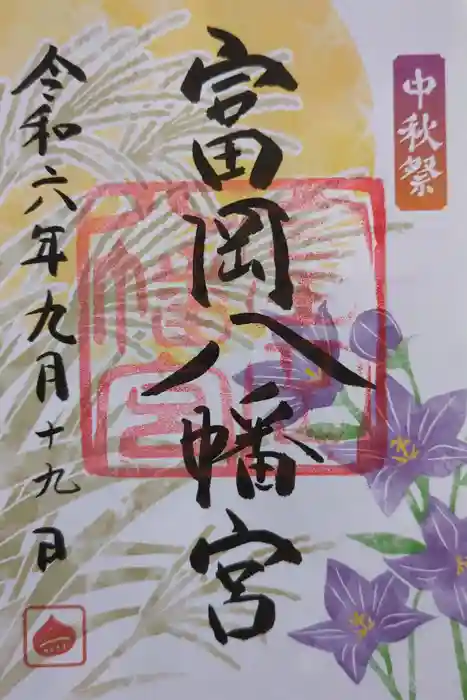 中秋祭
富岡八幡宮
令和六年九月十九日